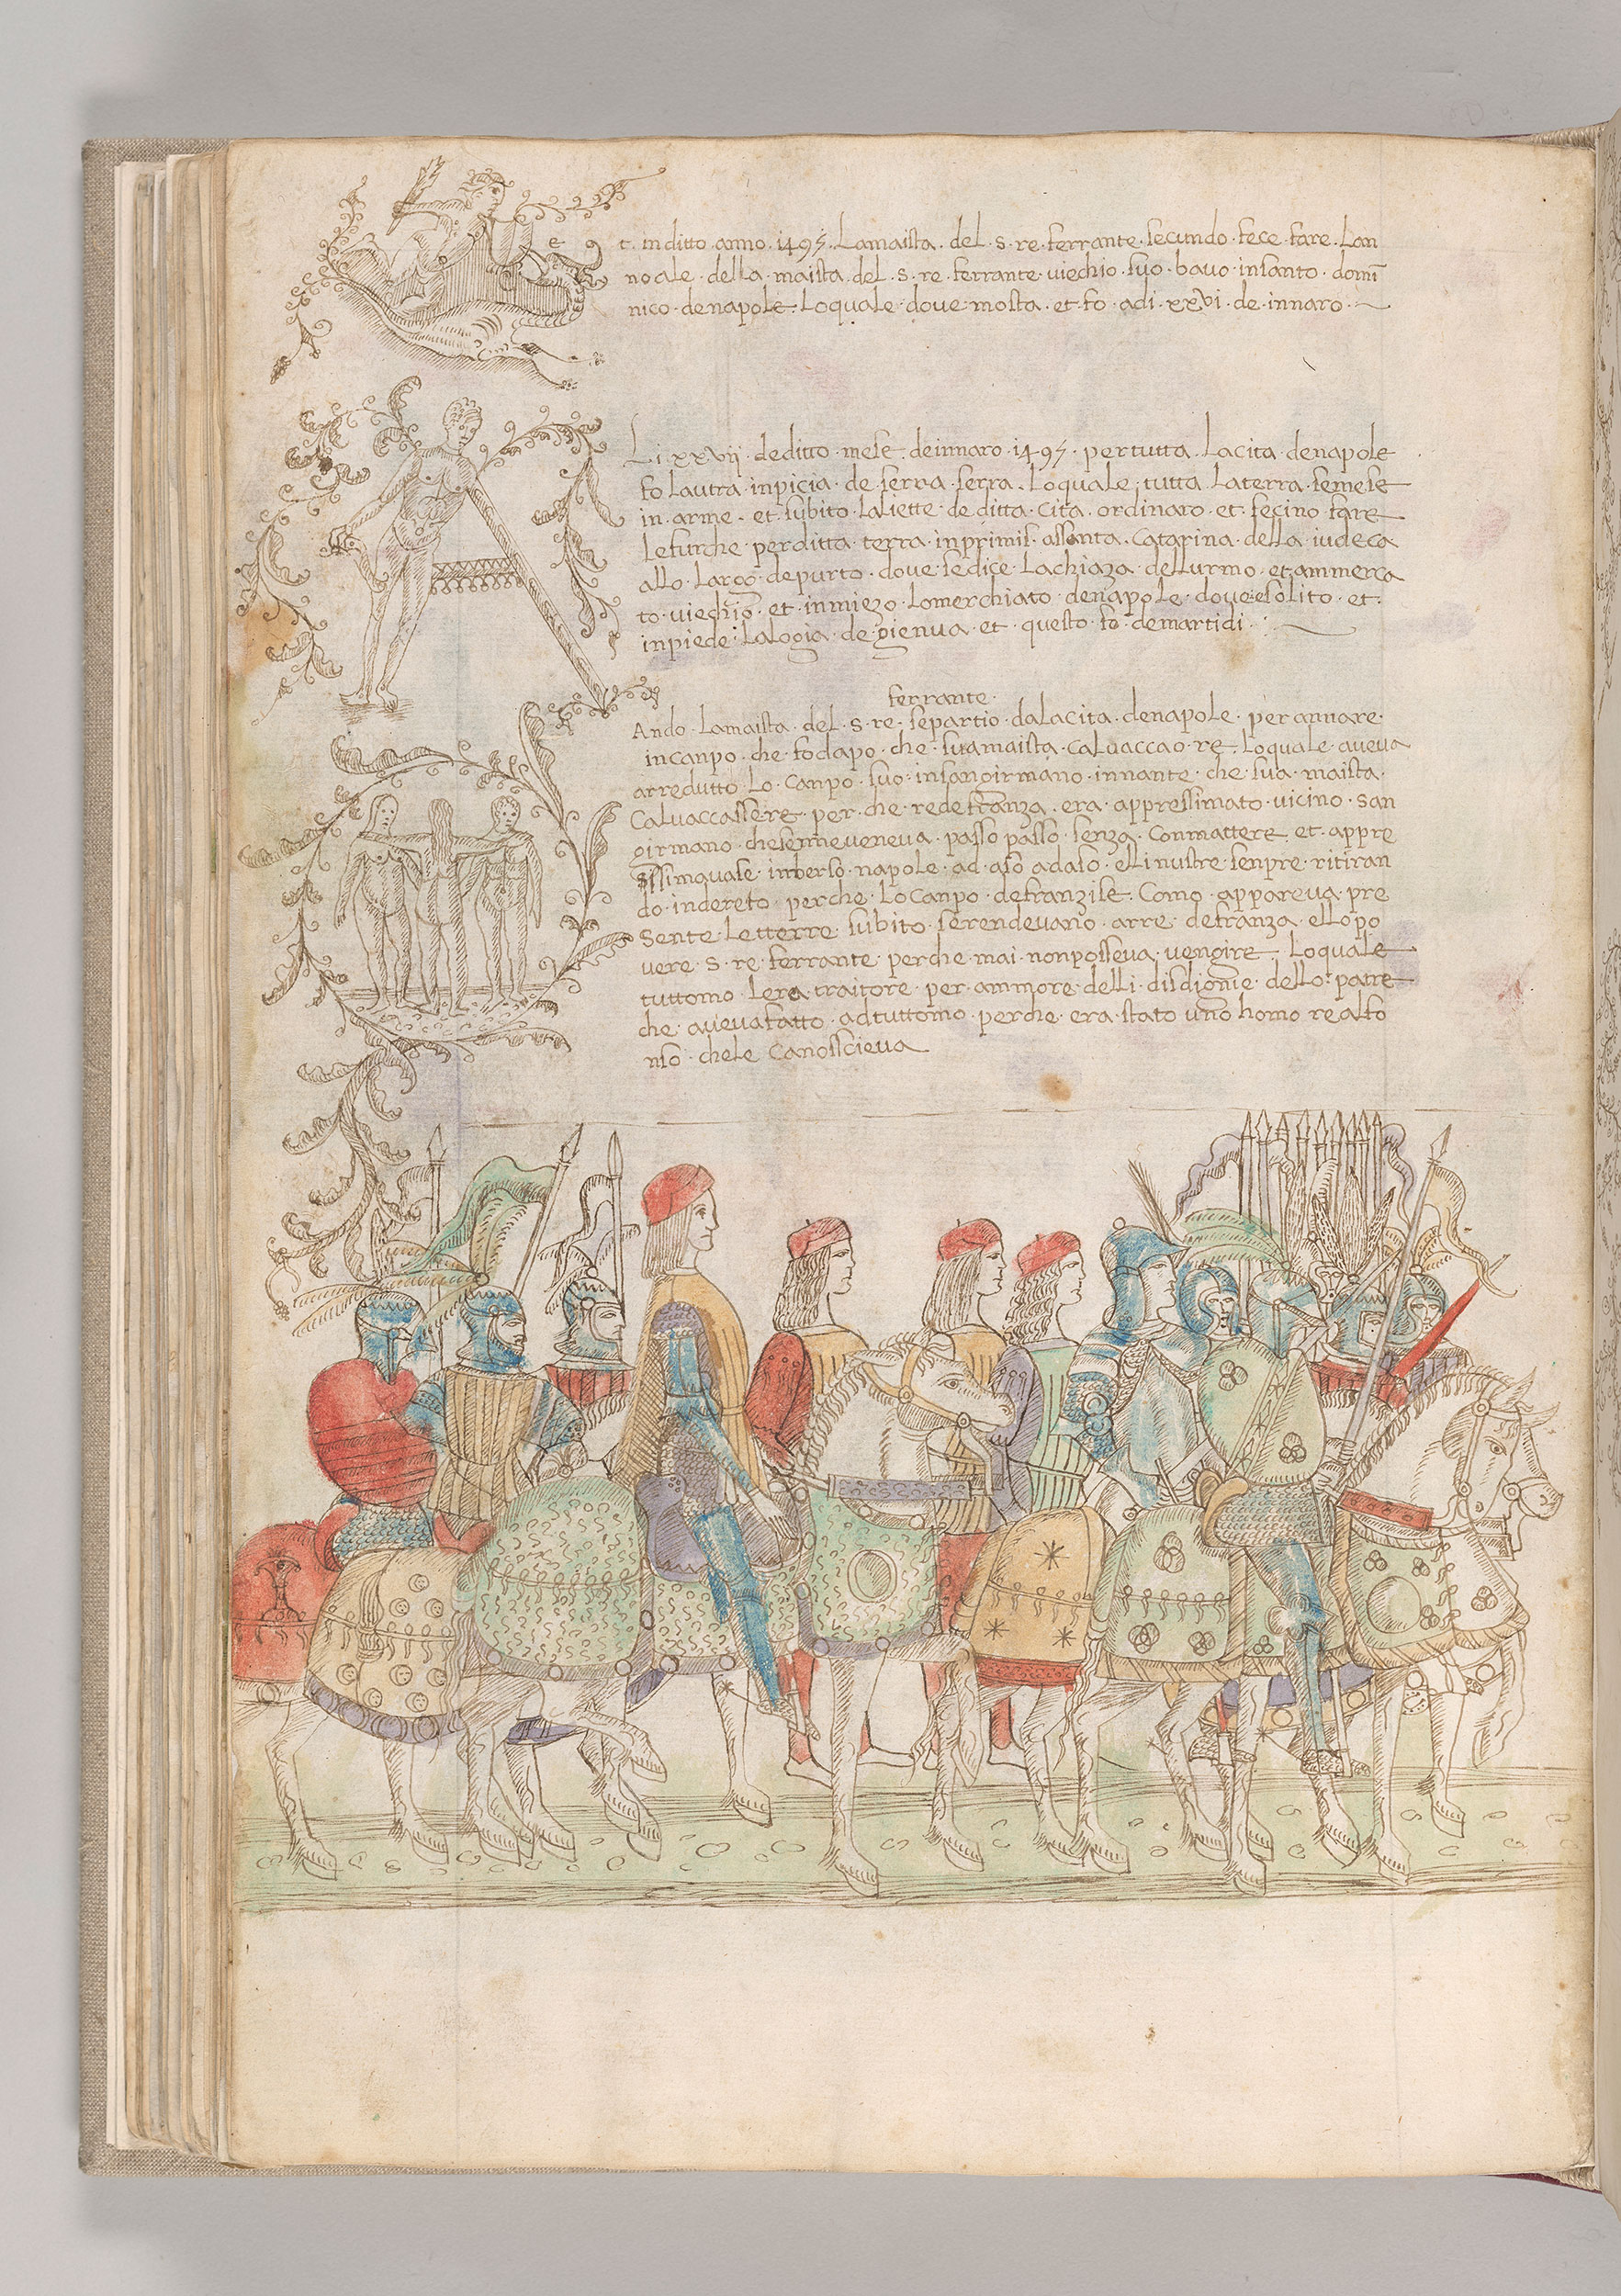 et. in ditto anno. 1495. Lamaista. del. s. re. ferrante. secundo. fece. fare. Lan
noale. della. maista. del. s. re. ferrante. viechio. suo. bavo. insanto. domī
nico. denapole. Loquale. dove. mosta. et. fo. adi. xxvi. de. innaro.
Li. xxvii. de ditto. mese. deinnaro. 1495. pertutta. Lacita. denapole
fo Lautra. inpicia. de. serra. serra. Loquale. tutta. Laterra. semese
in. arme. et. subito. La de. ditta. Cita. ordinaro. et. fecino. fare
Lefurche. perditta. terra. inprimis. assanta. Catarina. della. iudeca
allo. Largo. depurto. dove. sedice. Lachiaza. dellurmo. et ammerca
to. viechio. et. inmiezo. Lomerchiato. denapole. dove esolito. et.
inpiede. Lalogia. de. gienua. et. questo. fo. demartidi.
ferrante.
Ando. Lamaista. del. s. re. separtio. dalacita. denapole. per annare.
incanpo. che. fo dapo. che. suamaista. Calvaccao. re. Loquale. aveva
arredutto Lo. Canpo. suo. insangirmano. innante. che. sua. maista.
Calvaccassere. per. che. redefranza. era. appressimato. vicino. san
girmano. chesenneveneva. passo passo. senza. Conmattere. et. appre
ssimquase. inverso. napole. ad. aso adaso. elli nustre. senpre. ritiran
do. indereto. perche. Lo Canpo. defranzise. Como. appareva. pre
sente. Leterre. subito. serendevano. arre. defranza. ello po
vere. s. re. ferrante. perche. mai. nonposseva. vengire. Loquale
tuttomo. Lera traitore. per. ammore. delli. disdignie. dello. patre
che. avevafatto. adtuttomo. perche. era. stato uno homo re alfo
nso. chele Canosscieva